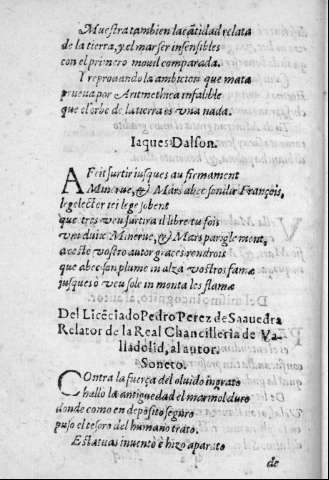 Muestra tambien la cãtidad relata
de la tierra, y el mar ser insensibles
con el primero mouil comparada.
Y reprouando la ambicion que mata
prueua por Aritmethica infalible
que el orbe de la tierra es vna nada.
Iaques Dalson.
A Feit surtir iusques au firmament
Minerue, & Mars abec son dir François,
le gelector iei lege sobent
que tres veu surtira il libre tu fois
Minerue, & Mars parigle mont,
a ceste vostro autor graces rendroit
que abec son plume in alza vostros famæ
iusques ò veu sole in monta les flamæ
Del Licẽciado Pedro Perez de Saauedra
Relator de la Real Chancilleria de Va-
lladolid, al autor.
Soneto.
COntra la fuerça del oluido ingrato
hallò la antiguedad el marmol duro
donde como en deposito seguro
puso el tesoro del humano trato.
Estatuas inuentò è hizo aparato
de